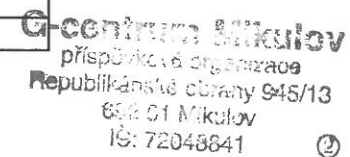 G-centrum Mikulov
příspěvková organizace
Republikánské obrany 945/13
692 01 Mikulov
IČ: 72048841
②